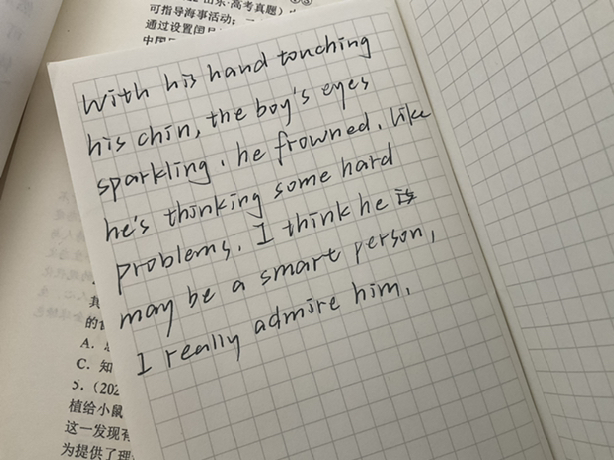 山东·高考真题)
可指导海事活动;
通过设置国
中国
With his hand touching
his chin, the boy's eyes
sparkling, he frowned, like
he's thinking some hard
problems. I think he is
may be a smart person,
I really admire him.
其
的
A.
C. 知
5. (202
植给小鼠
这一发现有
为提供了理